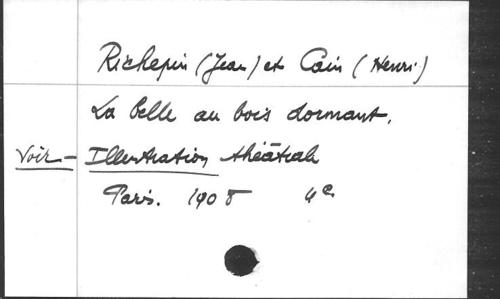 Richepin (Jean) et Cain (Henri)
La belle au bois dormant.
Voir - Illustration théâtrale
Paris. 1908 4e